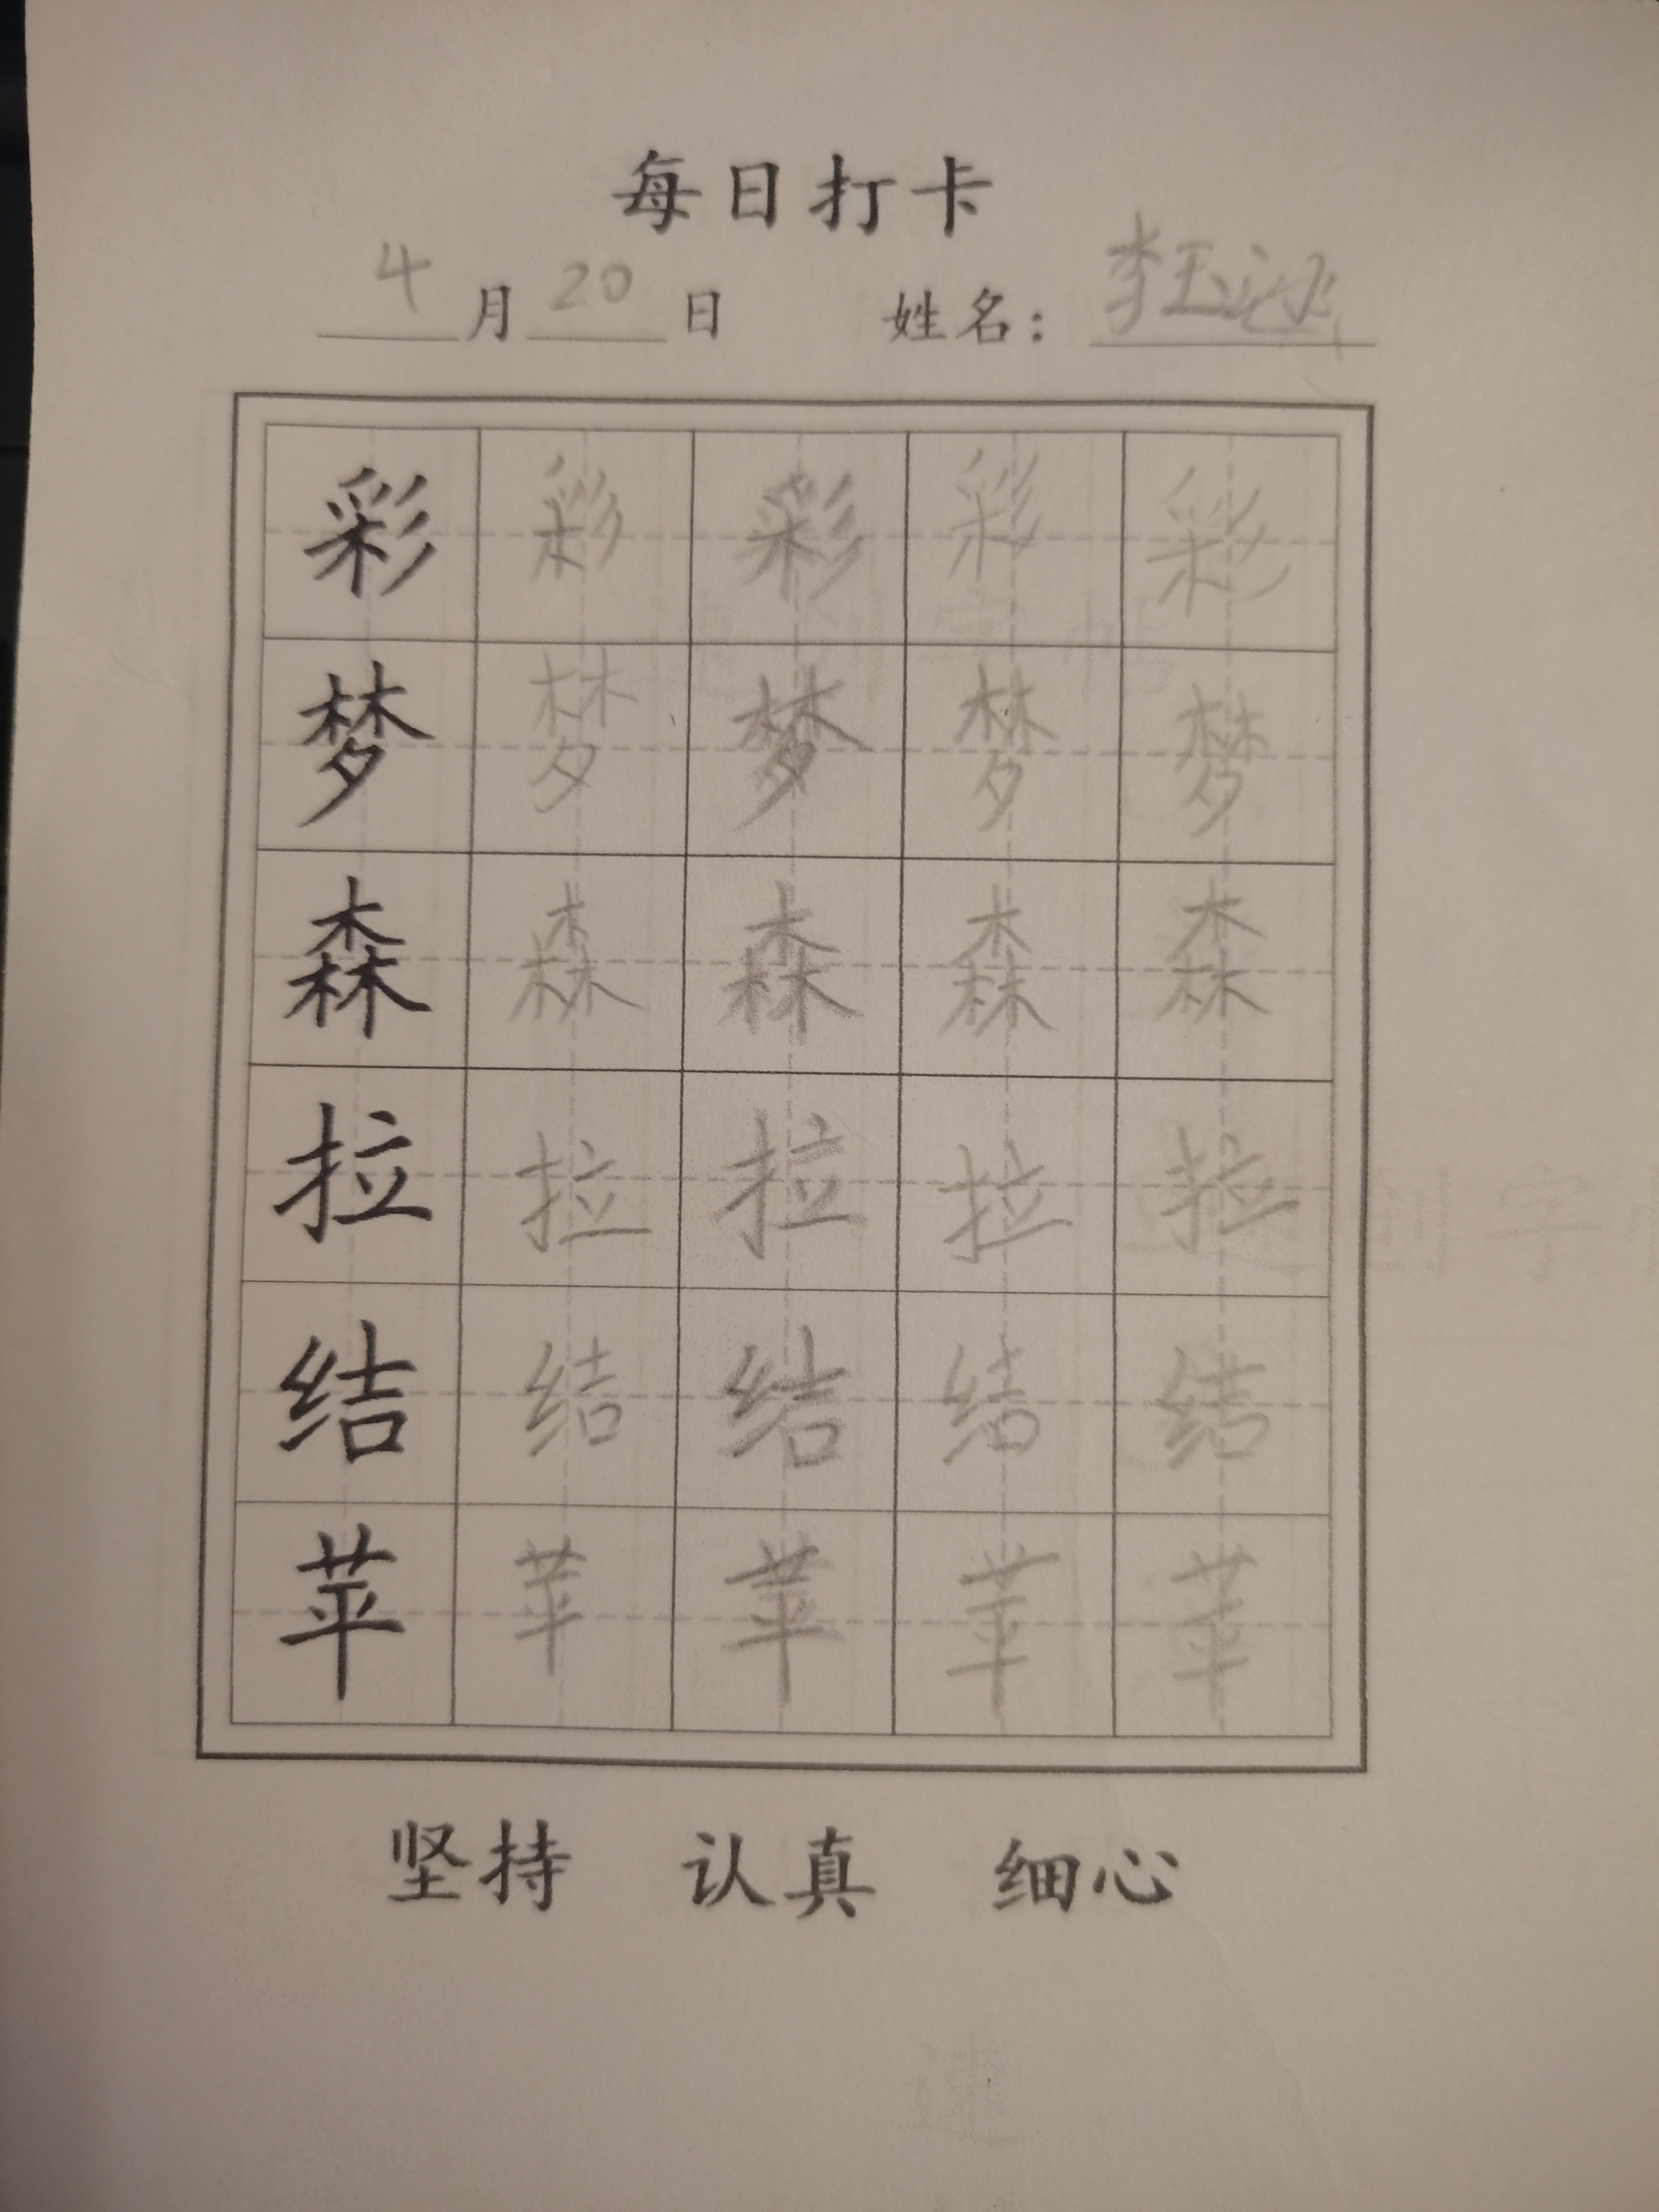 每日打卡
4月20日 姓名：李玉
彩 彩 彩 彩 彩
梦 梦 梦 梦 梦
森 森 森 森 森
拉 拉 拉 拉 拉
结 结 结 结 结
苹 苹 苹 苹 苹
坚持 认真 细心